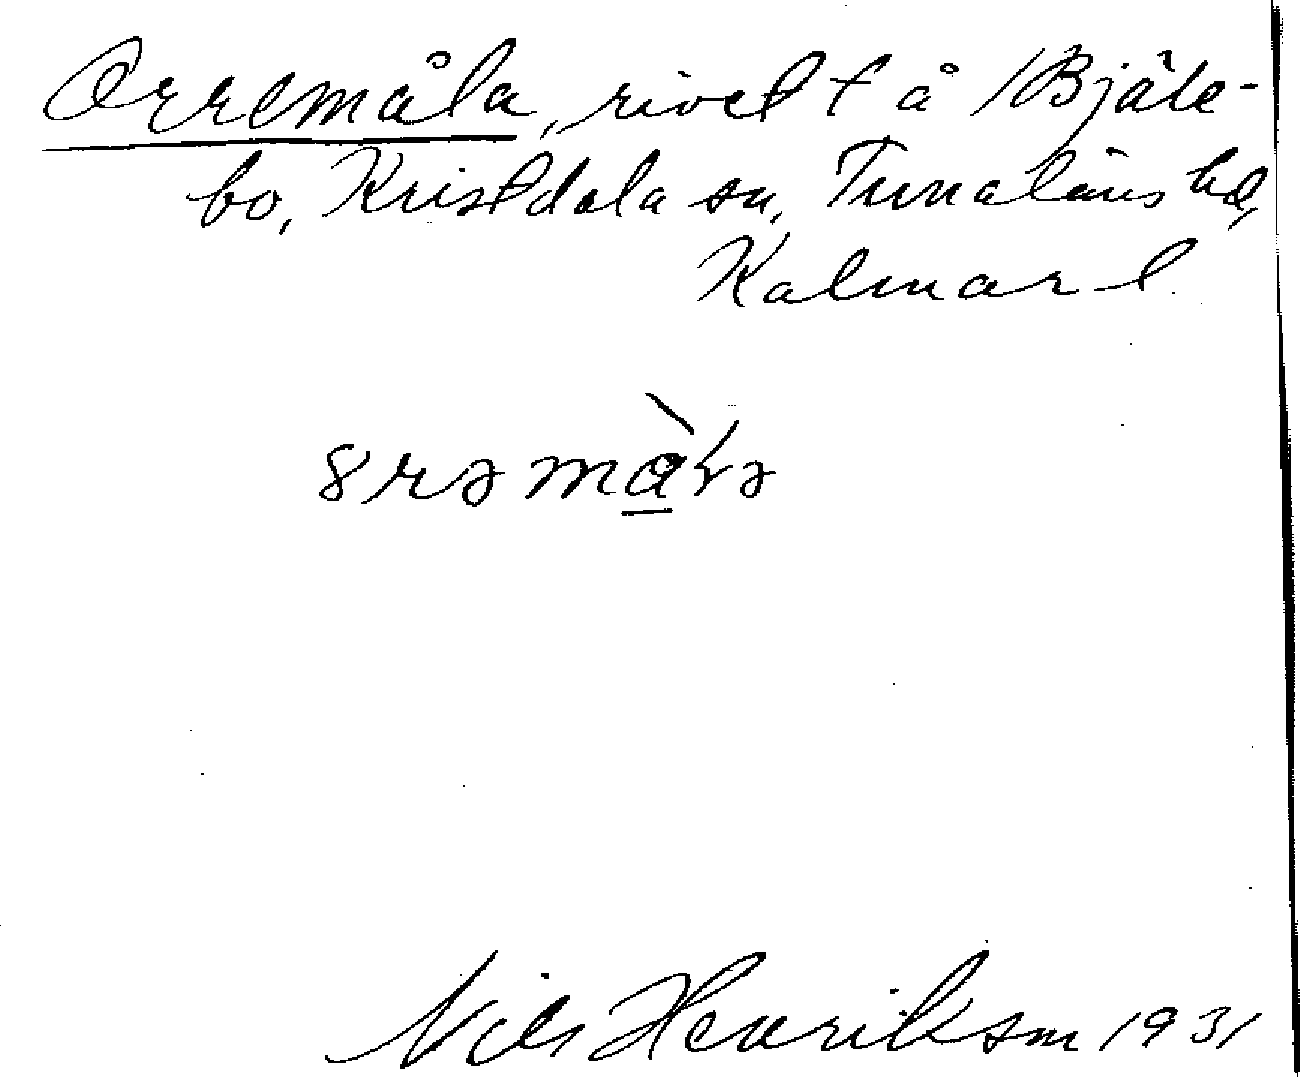 Orremåla, rivet t å Bjäle-
bo, Kristdala sn, Tunaläns hd,
Kalmar l.
Nils Henrikson 1931